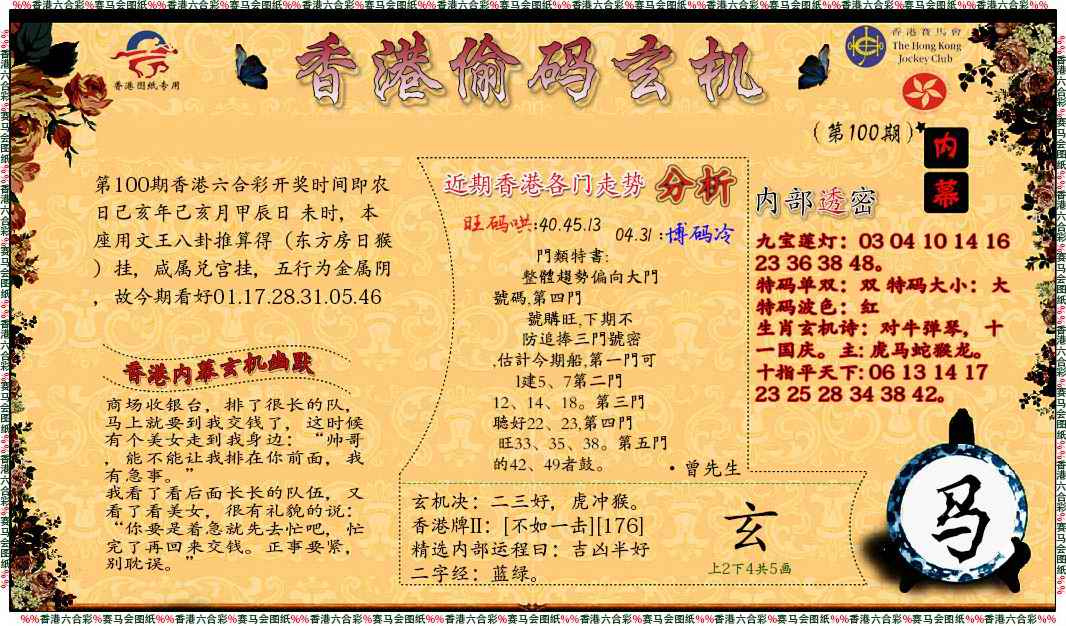 %%香港六合彩%赛马会图纸%%香港六合彩%赛马会图纸%%香港六合彩%赛马会图纸%%香港六合彩%赛马会图纸%%香港六合彩%赛马会图纸%%香港六合彩%赛马会图纸%%香港六合彩%赛马会图纸%%
香港图纸专用
香港偷码玄机
香港賽馬會
The Hong Kong
Jockey Club
(第100期)
内幕
第100期香港六合彩开奖时间即农
日己亥年己亥月甲辰日 未时，本
座用文王八卦推算得（东方房日猴
）挂，咸属兑宫挂，五行为金属阴
，故今期看好01.17.28.31.05.46
香港内幕玄机幽默
商场收银台，排了很长的队，
马上就要到我交钱了，这时候
有个美女走到我身边：“帅哥
，能不能让我排在你前面，我
有急事。”
我看了看后面长长的队伍，又
看了看美女，很有礼貌的说：
“你要是着急就先去忙吧，忙
完了再回来交钱。正事要紧，
别耽误。”
近期香港各门走势 分析
旺码哄:40.45.13 04.31 :博码冷
門類特書:
整體趨勢偏向大門
號碼,第四門
號購旺,下期不
防追捧三門號密
,估計今期船,第一門可
l建5、7第二門
12、14、18。第三門
聽好22、23,第四門
旺33、35、38。第五門
的42、49者鼓。
·曾先生
玄机决：二三好，虎冲猴。
香港牌II：[不如一击][176]
精选内部运程曰：吉凶半好
二字经：蓝绿。
玄
上2下4共5画
内部透密
九宝莲灯：03 04 10 14 16
23 36 38 48。
特码单双：双 特码大小：大
特码波色：红
生肖玄机诗：对牛弹琴，十
一国庆。主: 虎马蛇猴龙。
十指平天下: 06 13 14 17
23 25 28 34 38 42。
马
%%香港六合彩%赛马会图纸%%香港六合彩%赛马会图纸%%香港六合彩%赛马会图纸%%香港六合彩%赛马会图纸%%香港六合彩%赛马会图纸%%香港六合彩%赛马会图纸%%香港六合彩%赛马会图纸%%